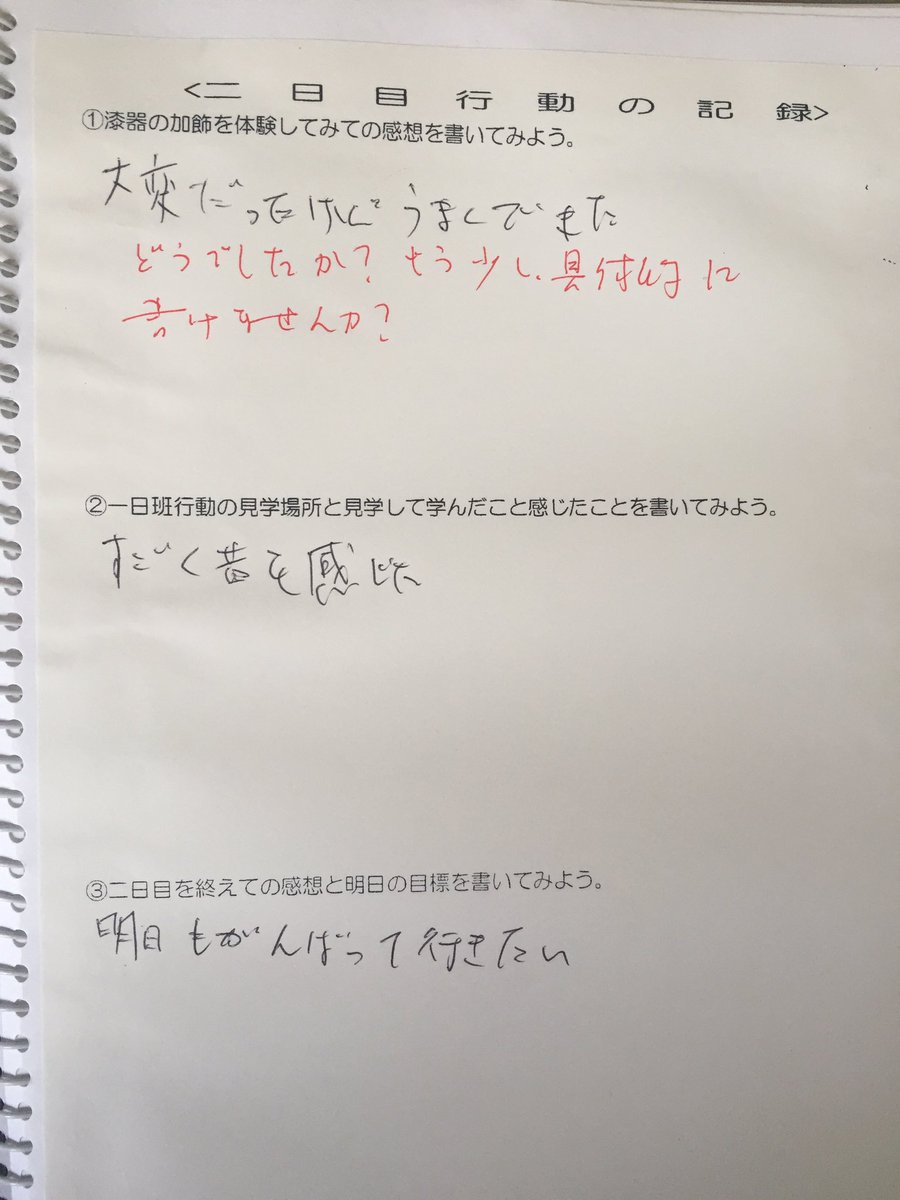 <二日目行動の記録>
①漆器の加飾を体験してみての感想を書いてみよう。
大変だったけどうまくできた
どうでしたか？もう少し、具体的に
書けませんか？
②一日班行動の見学場所と見学して学んだこと感じたことを書いてみよう。
すごく昔を感じた
③二日目を終えての感想と明日の目標を書いてみよう。
明日もがんばって行きたい